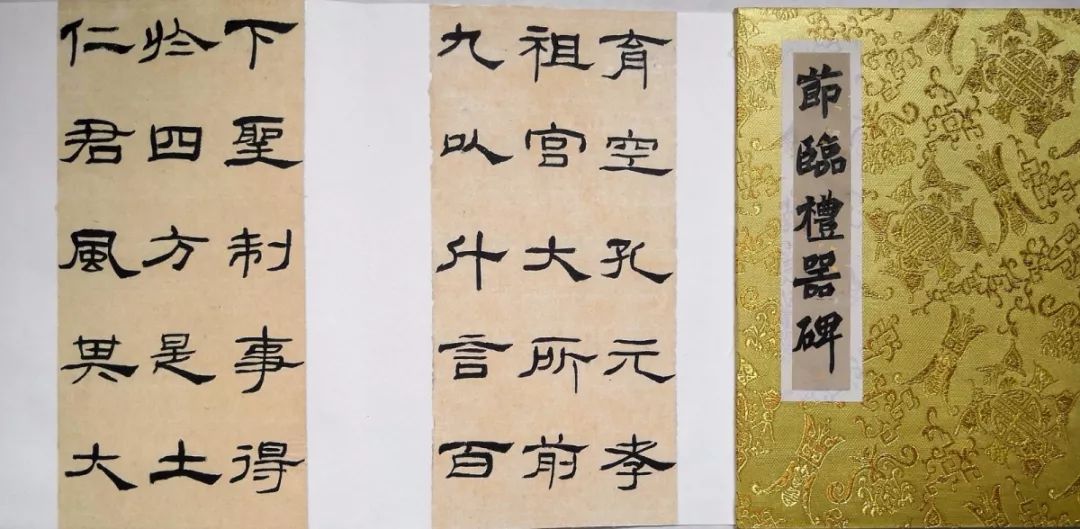 莭臨禮器碑
育空孔元孝
祖宮大所前
九以什言百
下聖制事得
於四方是土
仁君風異大